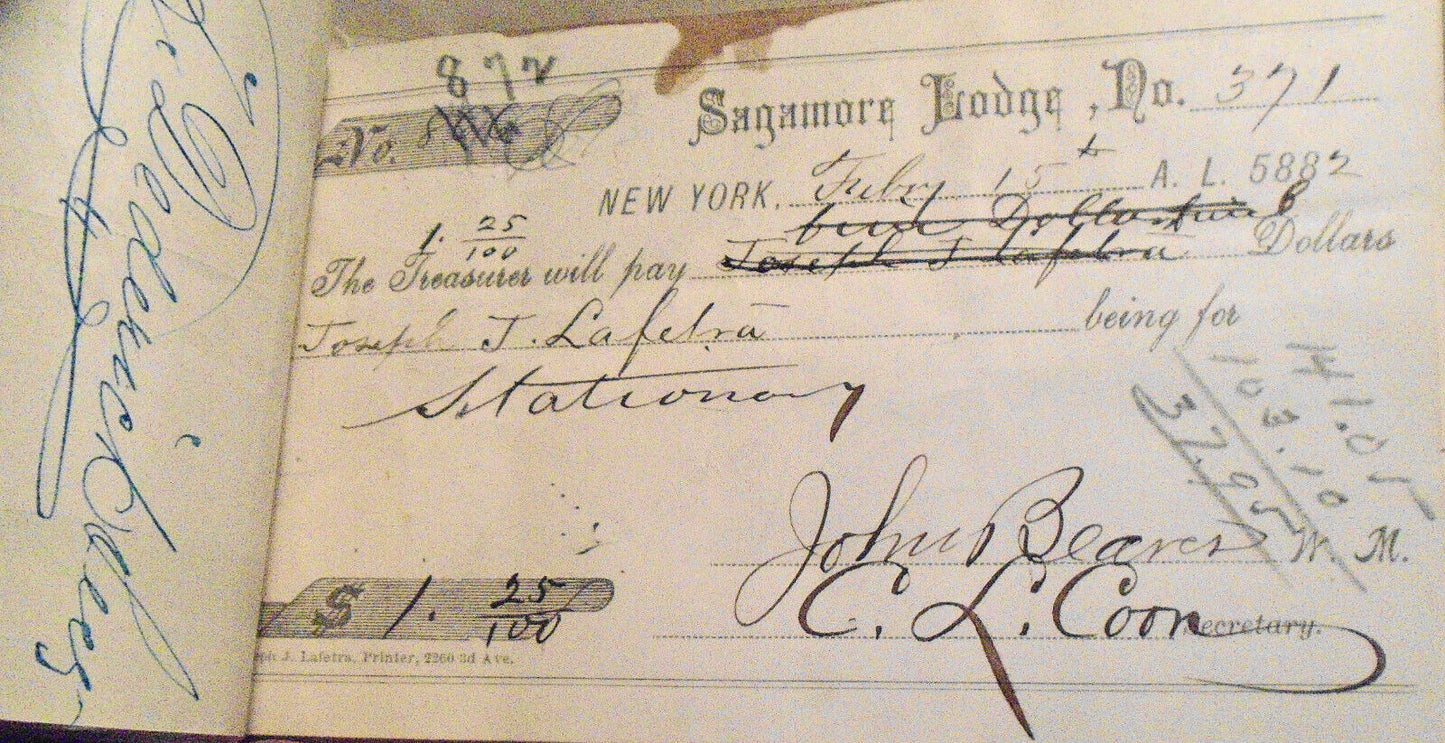 872
No.
Sagamore Lodge, No. 371
NEW YORK, Feby 15 A. L. 5882
1. 25/100
The Treasurer will pay Joseph J Lafetra Dollars
Joseph J. Lafetra being for
Stationary
141.05
103.10
37.95
John Beaver W. M.
$ 1. 25/100
C. L. Coon Secretary.
J. Lafetra, Printer, 2260 3d Ave.